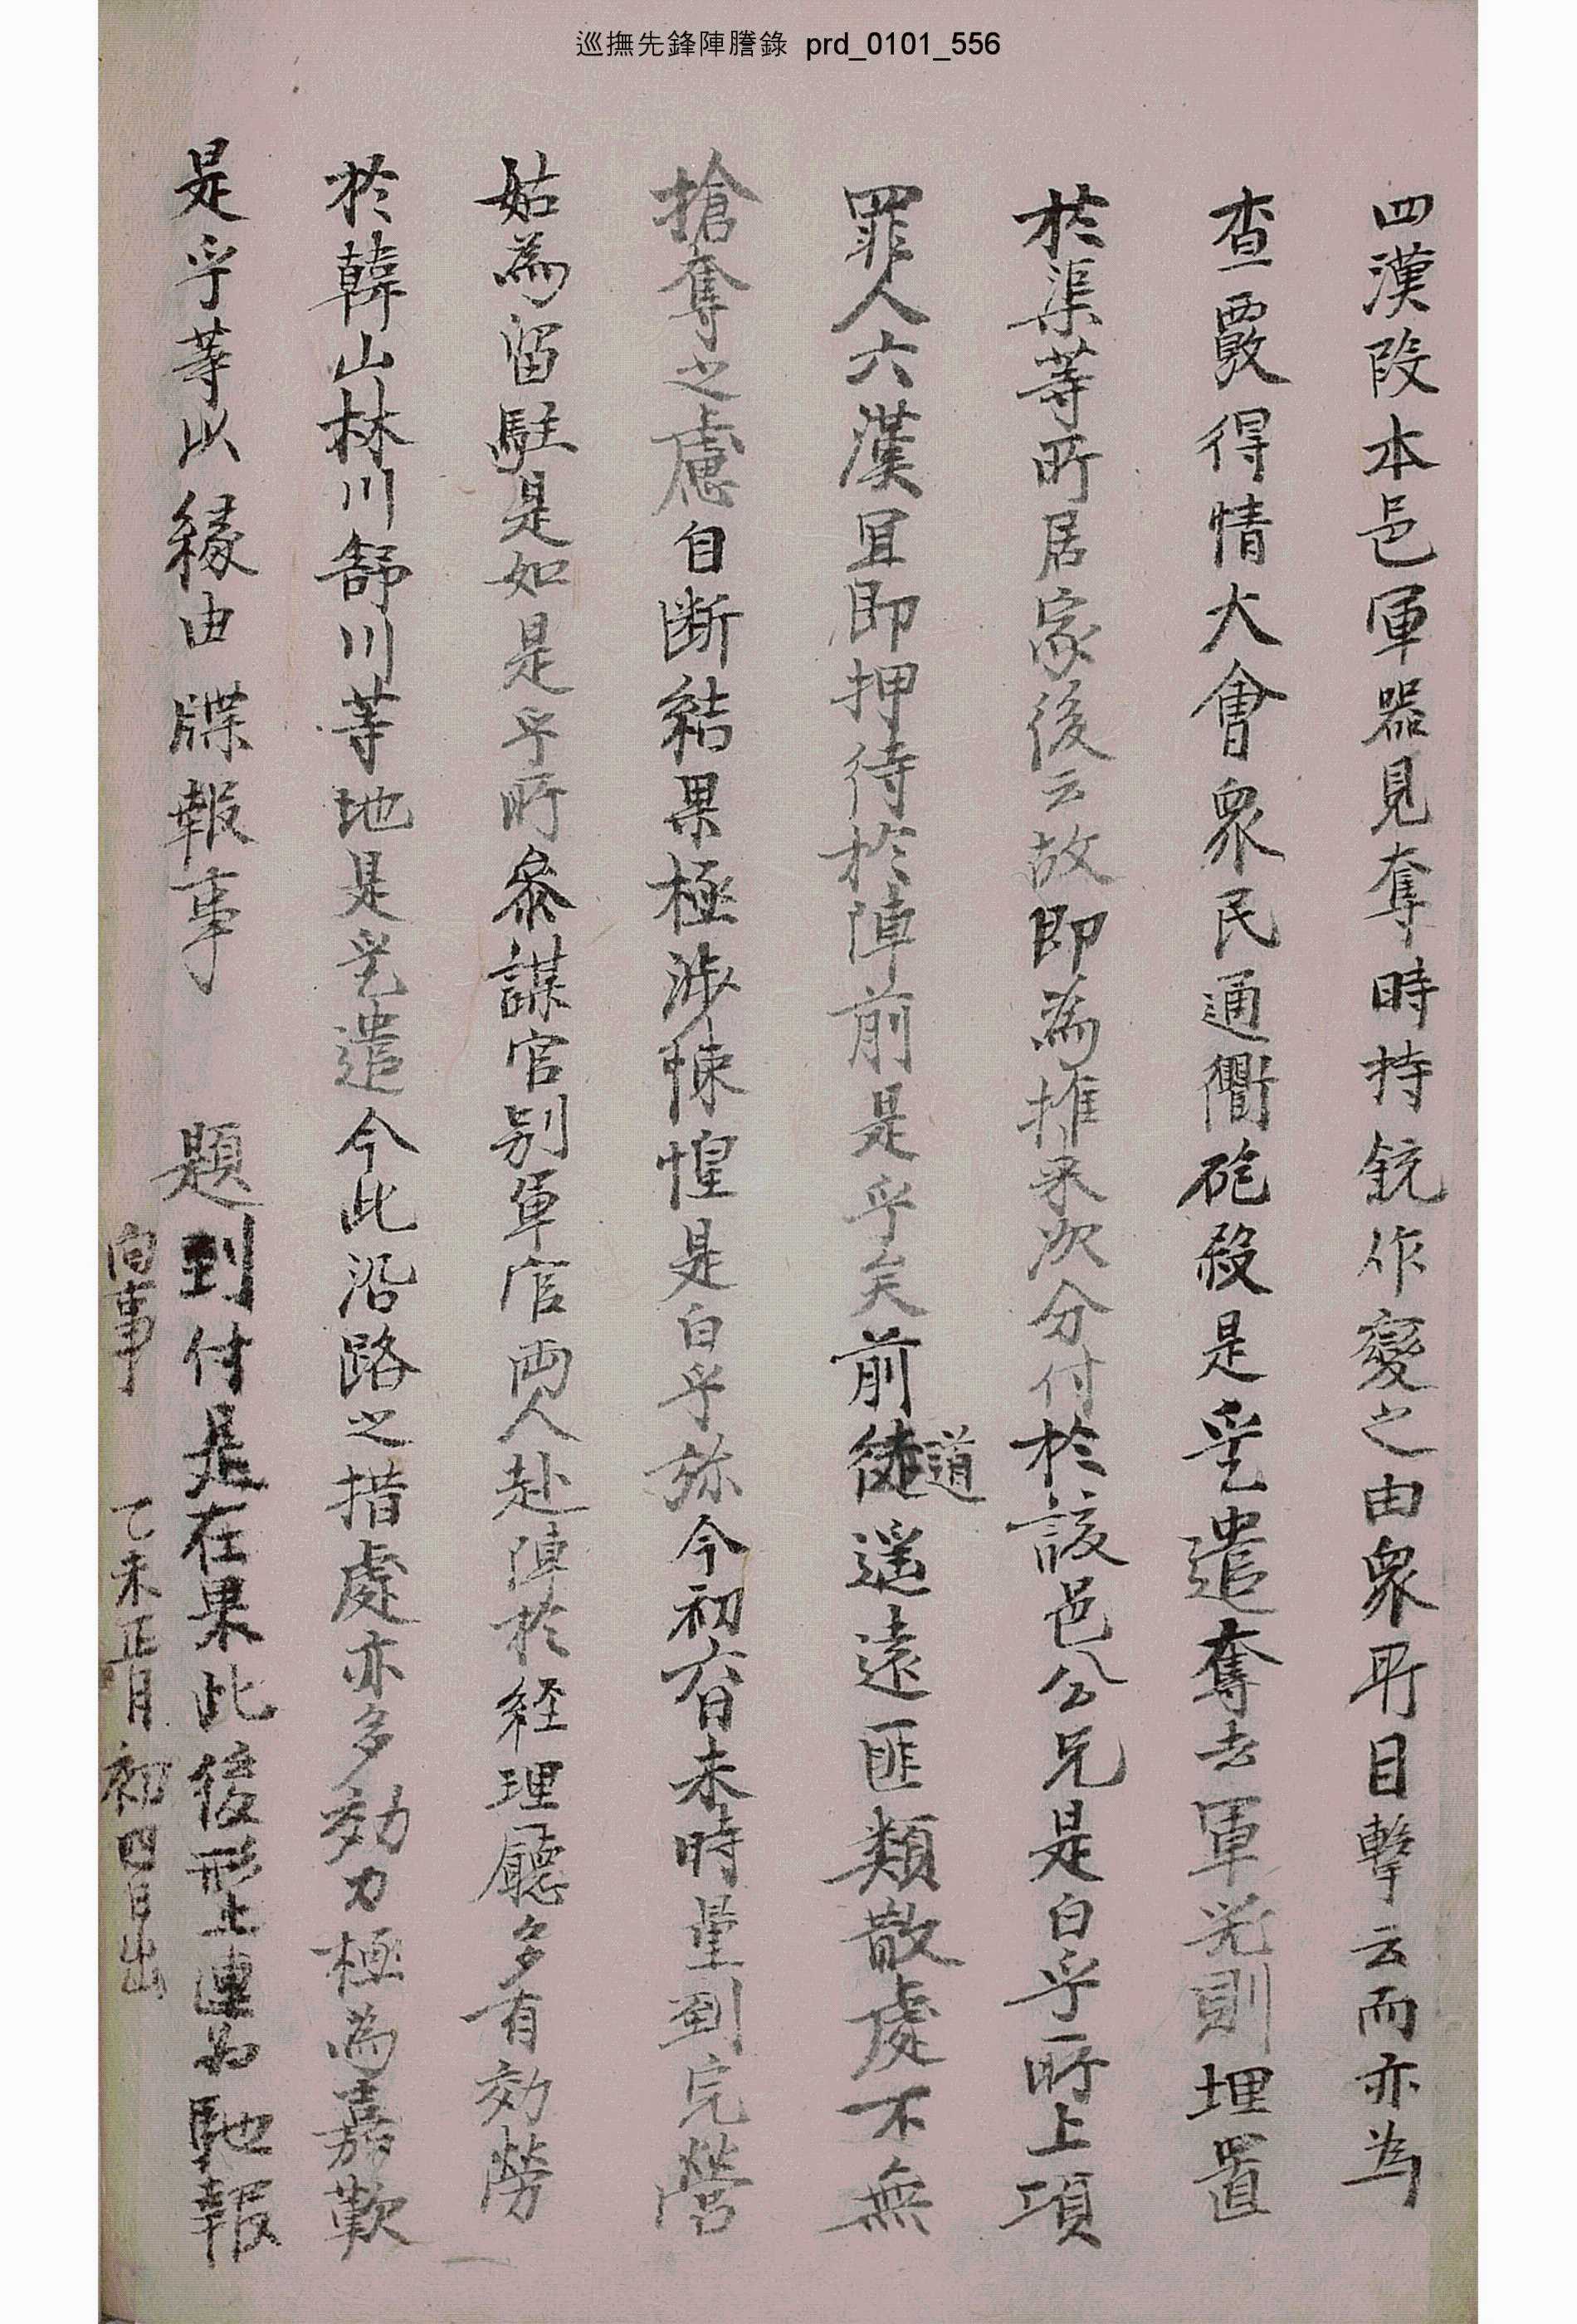 巡撫先鋒陣謄錄 prd_0101_556
四漢段本邑軍器見奪時持銃作變之由衆所目擊云而亦爲
查覈得情大會衆民通衢砲殺是乎乭遣奪去軍器則埋置
於渠等所居家後云故卽爲推來次分付於該邑公兄是白乎所上項
罪人六漢因卽押待於陣前是乎矣前道遙遠匪類散處不無
搶奪之慮自断結果極涉悚惶是白乎旀今初六日未時量到完營
姑爲留駐是如是乎所叅謀官別軍官両人赴陣於経理廳多有効勞
於韓山林川舒川等地是乎遣今此沿路之措處亦多効力極爲嘉歎
是乎等以緣由牒報事 題到付是在果此後形止連爲馳報
向事 乙未正月初四日出